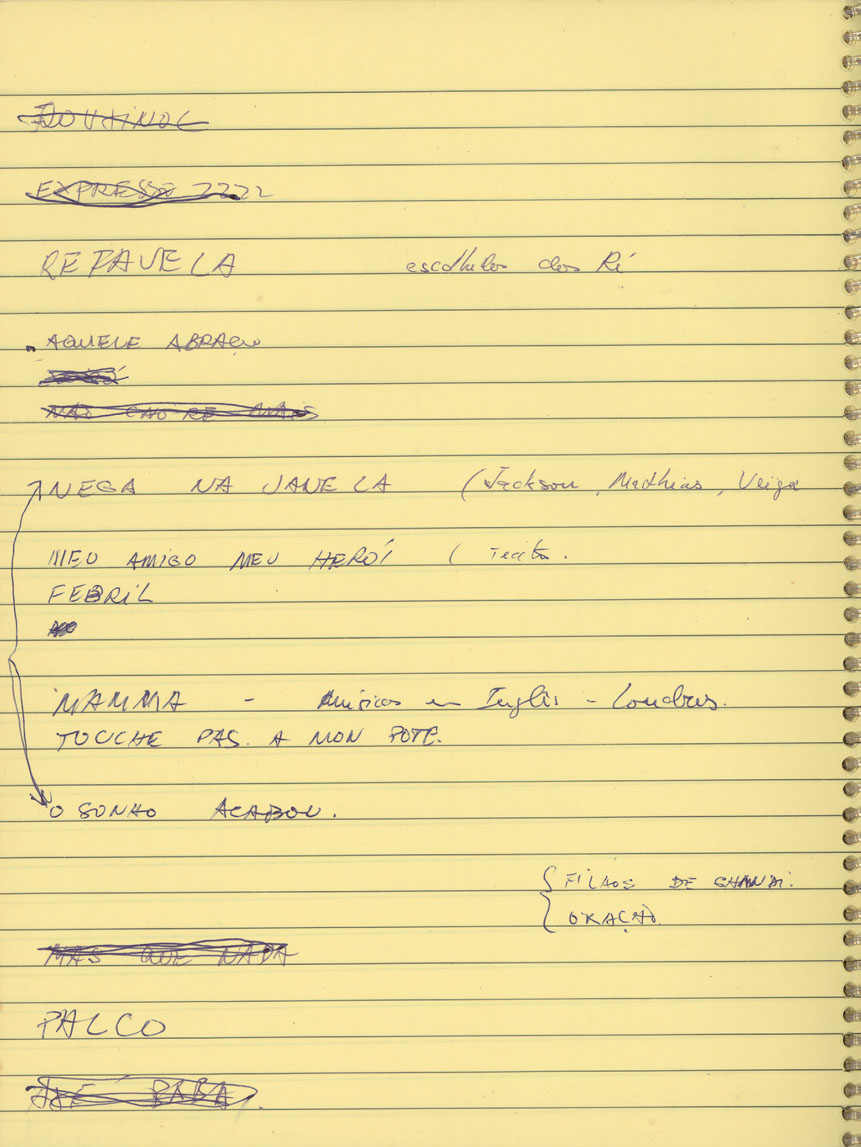 EXPRESSO 2222
REFAVELA dos Ré
AQUELE ABRAÇO
NÃO CHORE MAIS
NEGA NA JANELA (Jackson, Mathias, Veiga
MEU AMIGO MEU HERÓI (
FEBRIL
MAMMA - Músicas em Inglês - Londres.
TOUCHE PAS. A MON POTE.
O SONHO ACABOU.
FILHOS DE GHANDI.
ORAÇÃO.
MAS QUE NADA
PALCO
BABA.